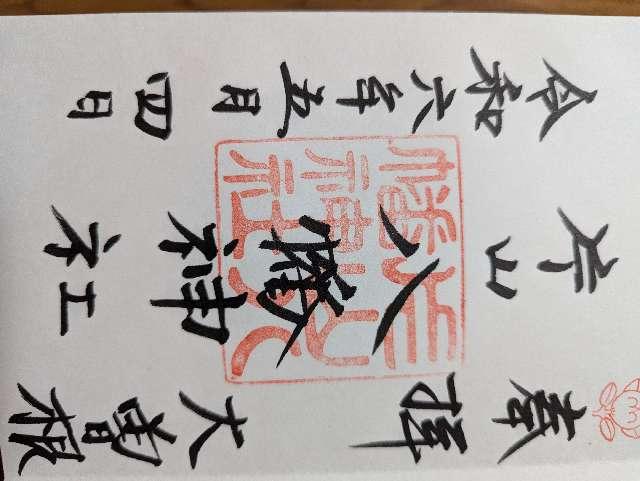 奉拝
大曽根
片山八幡神社
令和六年五月四日
片山八
幡神社